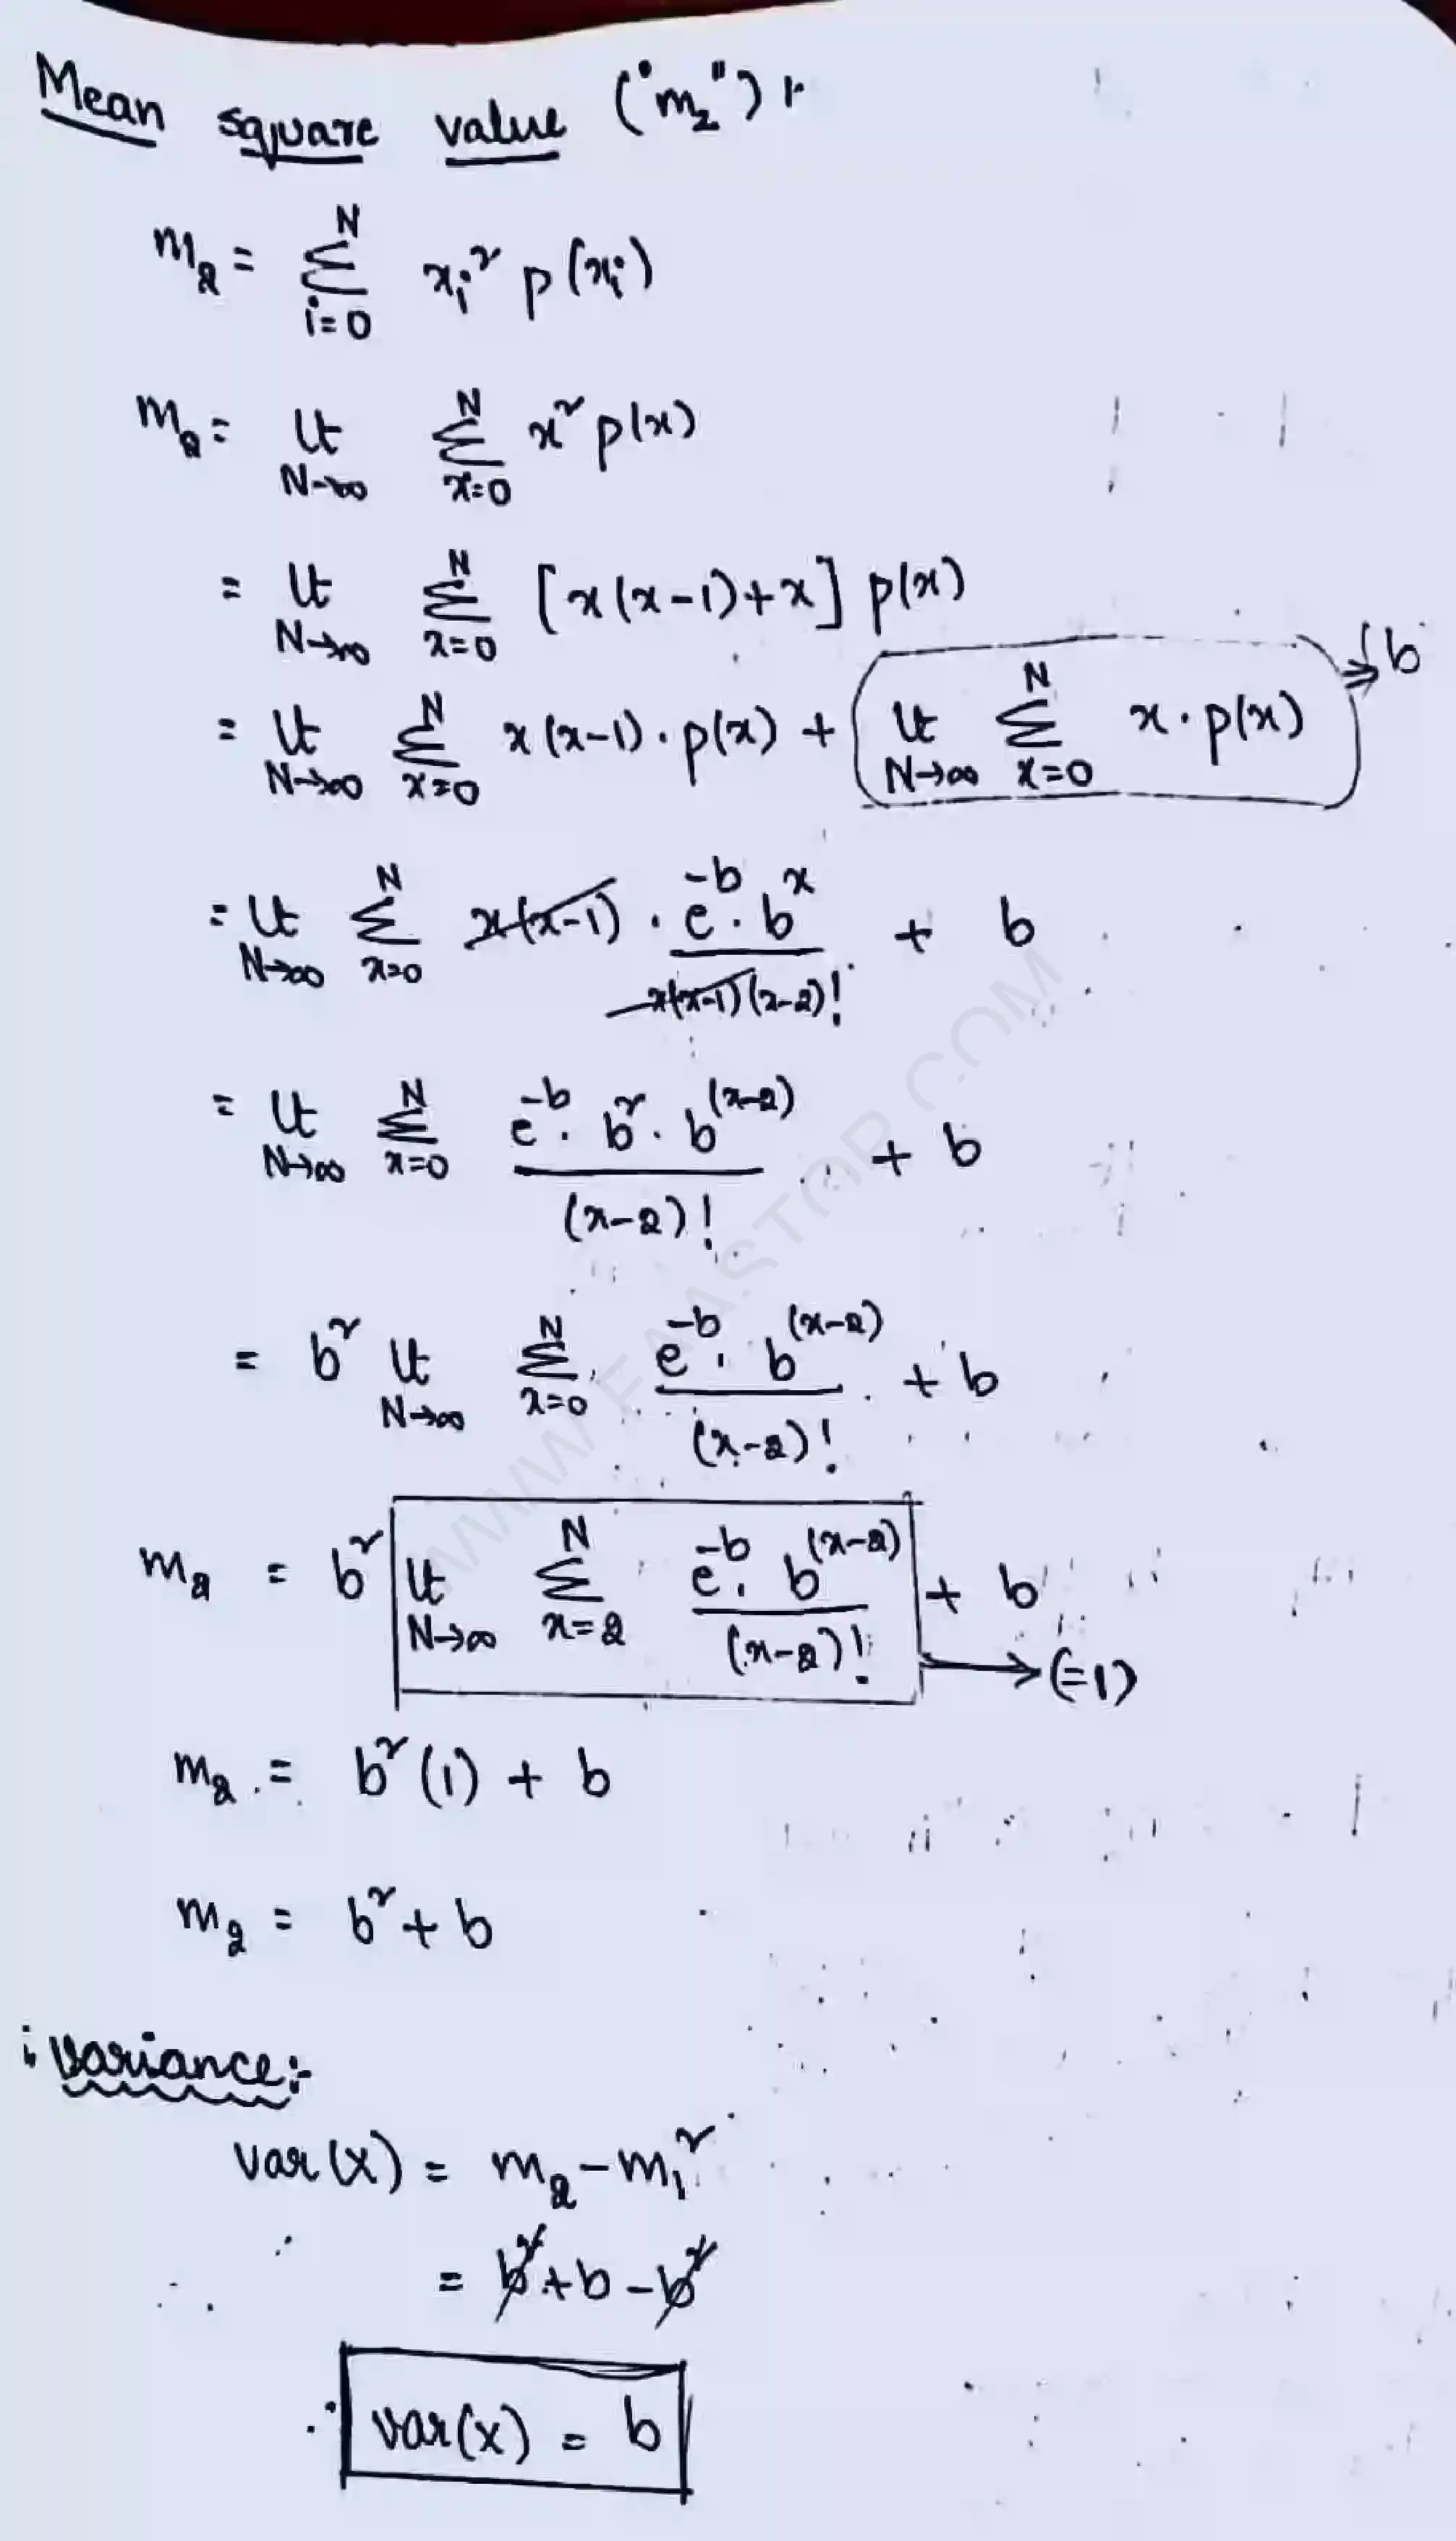 Mean square value ("m₂") :-
m₂ = N Σ i=0 xᵢ² p(xᵢ)
m₂ = lt N→∞ N Σ x=0 x² p(x)
= lt N→∞ N Σ x=0 [x(x-1)+x] p(x)
= lt N→∞ N Σ x=0 x(x-1)·p(x) + lt N→∞ N Σ x=0 x·p(x) → b
= lt N→∞ N Σ x=0 x(x-1) · e^-b · b^x / x(x-1)(x-2)! + b
= lt N→∞ N Σ x=0 e^-b · b² · b^(x-2) / (x-2)! + b
= b² lt N→∞ N Σ x=0 e^-b · b^(x-2) / (x-2)! + b
m₂ = b² lt N→∞ N Σ x=2 e^-b · b^(x-2) / (x-2)! + b → (=1)
m₂ = b²(1) + b
m₂ = b² + b
variance:-
var(x) = m₂ - m₁²
= b² + b - b²
∴ var(x) = b
WWW.FAASTOP.COM